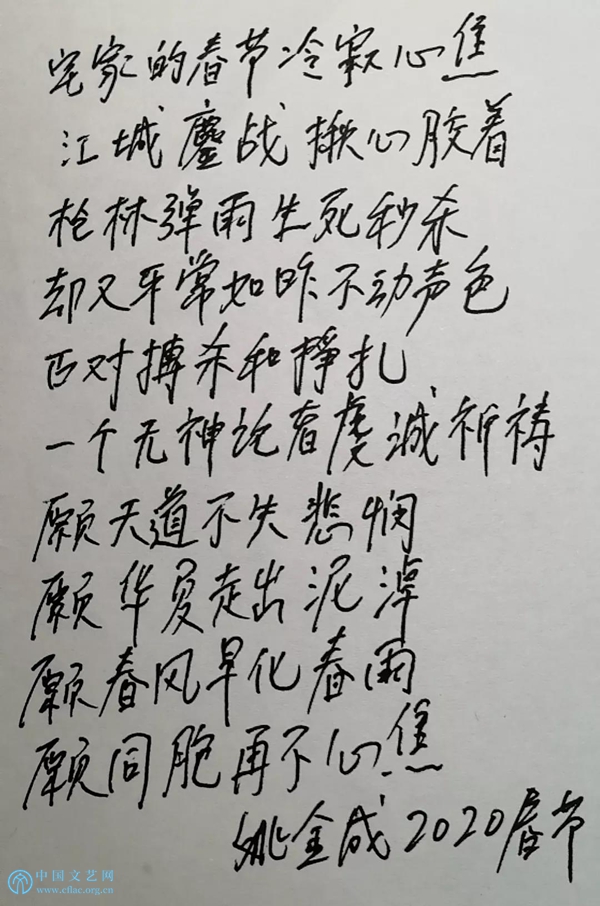 宅家的春节冷寂心焦
江城鏖战揪心胶着
枪林弹雨生死秒杀
却又平常如昨不动声色
面对搏杀和挣扎
一个无神论者虔诚祈祷
愿天道不失悲悯
愿华夏走出泥淖
愿春风早化春雨
愿同胞再不心焦
姚金成2020春节
中国文艺网
www.cflac.org.cn